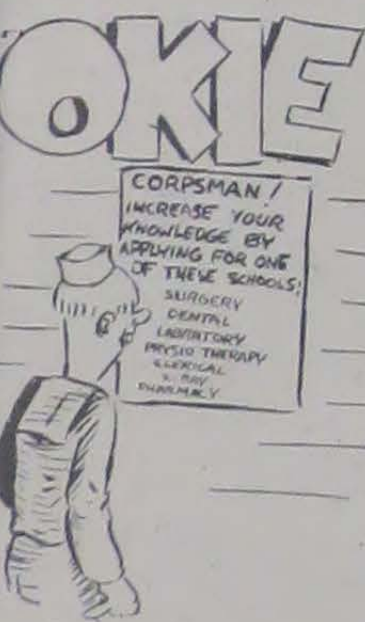 OKIE
CORPSMAN!
INCREASE YOUR
KNOWLEDGE BY
APPLYING FOR ONE
OF THESE SCHOOLS:
SURGERY
DENTAL
LABORATORY
PHYSIO THERAPY
CLERICAL
X RAY
PHARMACY